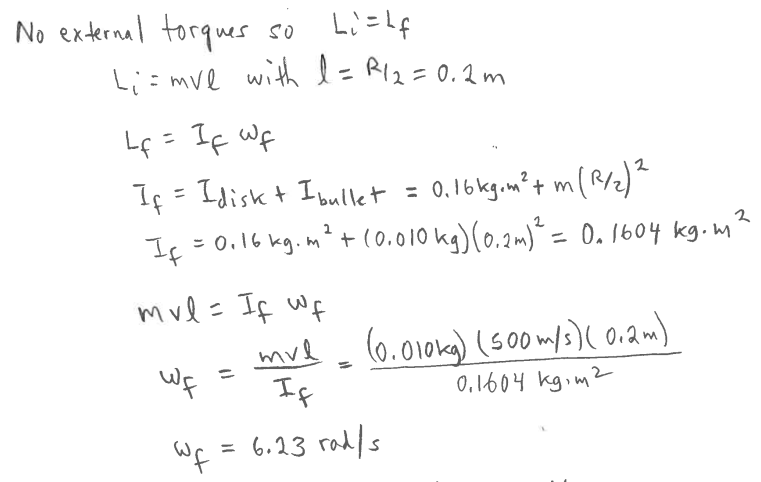 No external torques so Li=Lf
Li = mvl with l = R/2 = 0.2m
Lf = If ωf
If = Idisk + Ibullet = 0.16 kg·m² + m(R/2)²
If = 0.16 kg·m² + (0.010 kg)(0.2m)² = 0.1604 kg·m²
mvl = If ωf
ωf = mvl/If = (0.010kg)(500 m/s)(0.2m)/0.1604 kg·m²
ωf = 6.23 rad/s